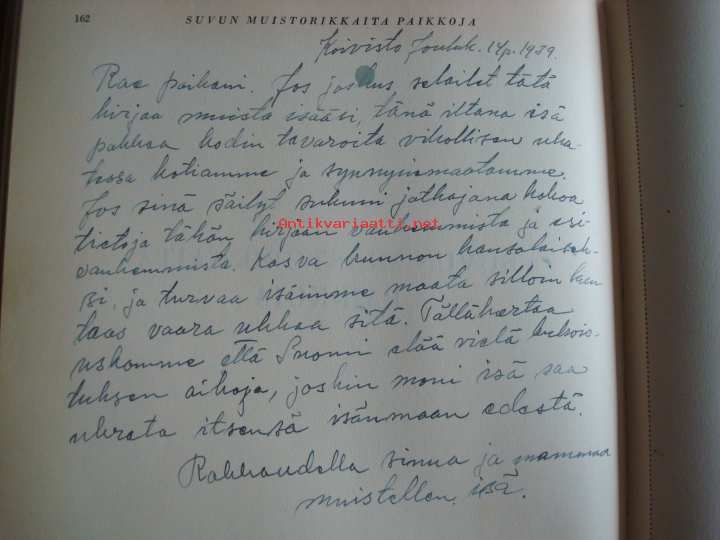 162 SUVUN MUISTORIKKAITA PAIKKOJA
Koivisto Jouluk. 14p. 1939.
Rae poikani. Jos joskus selailet tätä
kirjaa muista isääsi, tänä iltana isä
pakkaa kodin tavaroita vihollisen uha-
tessa kotiamme ja synnyinmaatamme.
Jos sinä säilyt sukuni jatkajana kokoa
tietoja tähän kirjaan vanhemmista ja esi-
Antikvariaatti.net
vanhemmista. Kasva kunnon kansalaisek-
si, ja turvaa isäimme maata silloin kun
taas vaara uhkaa sitä. Tällähertaa
uskomme että Suomi elää vielä kukois-
tuksen aikoja, joskin moni isä saa
uhrata itsensä isänmaan edestä.
Rakkaudella sinua ja mammaa
muistellen. isä.